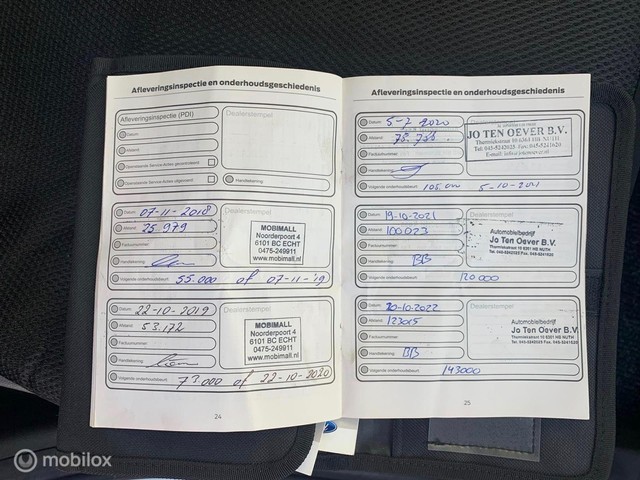 Afleveringsinspectie en onderhoudsgeschiedenis
Afleveringsinspectie (PDI)
Dealerstempel
Datum:
Afstand:
Openstaande Service-Acties gecontroleerd:
Openstaande Service-Acties uitgevoerd:
Handtekening:
Datum: 07-11-2018
Afstand: 25.979
Factuurnummer:
Handtekening:
Volgende onderhoudsbeurt: 55.000 of 07-11-'19
Dealerstempel
MOBIMALL
Noorderpoort 4
6101 BC ECHT
0475-249911
www.mobimall.nl
Datum: 22-10-2019
Afstand: 53.172
Factuurnummer:
Handtekening:
Volgende onderhoudsbeurt: 73.000 of 22-10-2020
Dealerstempel
MOBIMALL
Noorderpoort 4
6101 BC ECHT
0475-249911
www.mobimall.nl
24
Afleveringsinspectie en onderhoudsgeschiedenis
Datum: 5-7-2020
Afstand:
Factuurnummer:
Handtekening:
Volgende onderhoudsbeurt: 105.000 5-10-2021
JO TEN OEVER B.V.
Datum: 19-10-2021
Afstand: 100023
Factuurnummer:
Handtekening: BB
Volgende onderhoudsbeurt: 120000
Dealerstempel
Automobielbedrijf
Jo Ten Oever B.V.
Datum: 20-10-2022
Afstand: 123015
Factuurnummer:
Handtekening: BB
Volgende onderhoudsbeurt: 143000
Dealerstempel
Automobielbedrijf
Jo Ten Oever B.V.
25
mobilox